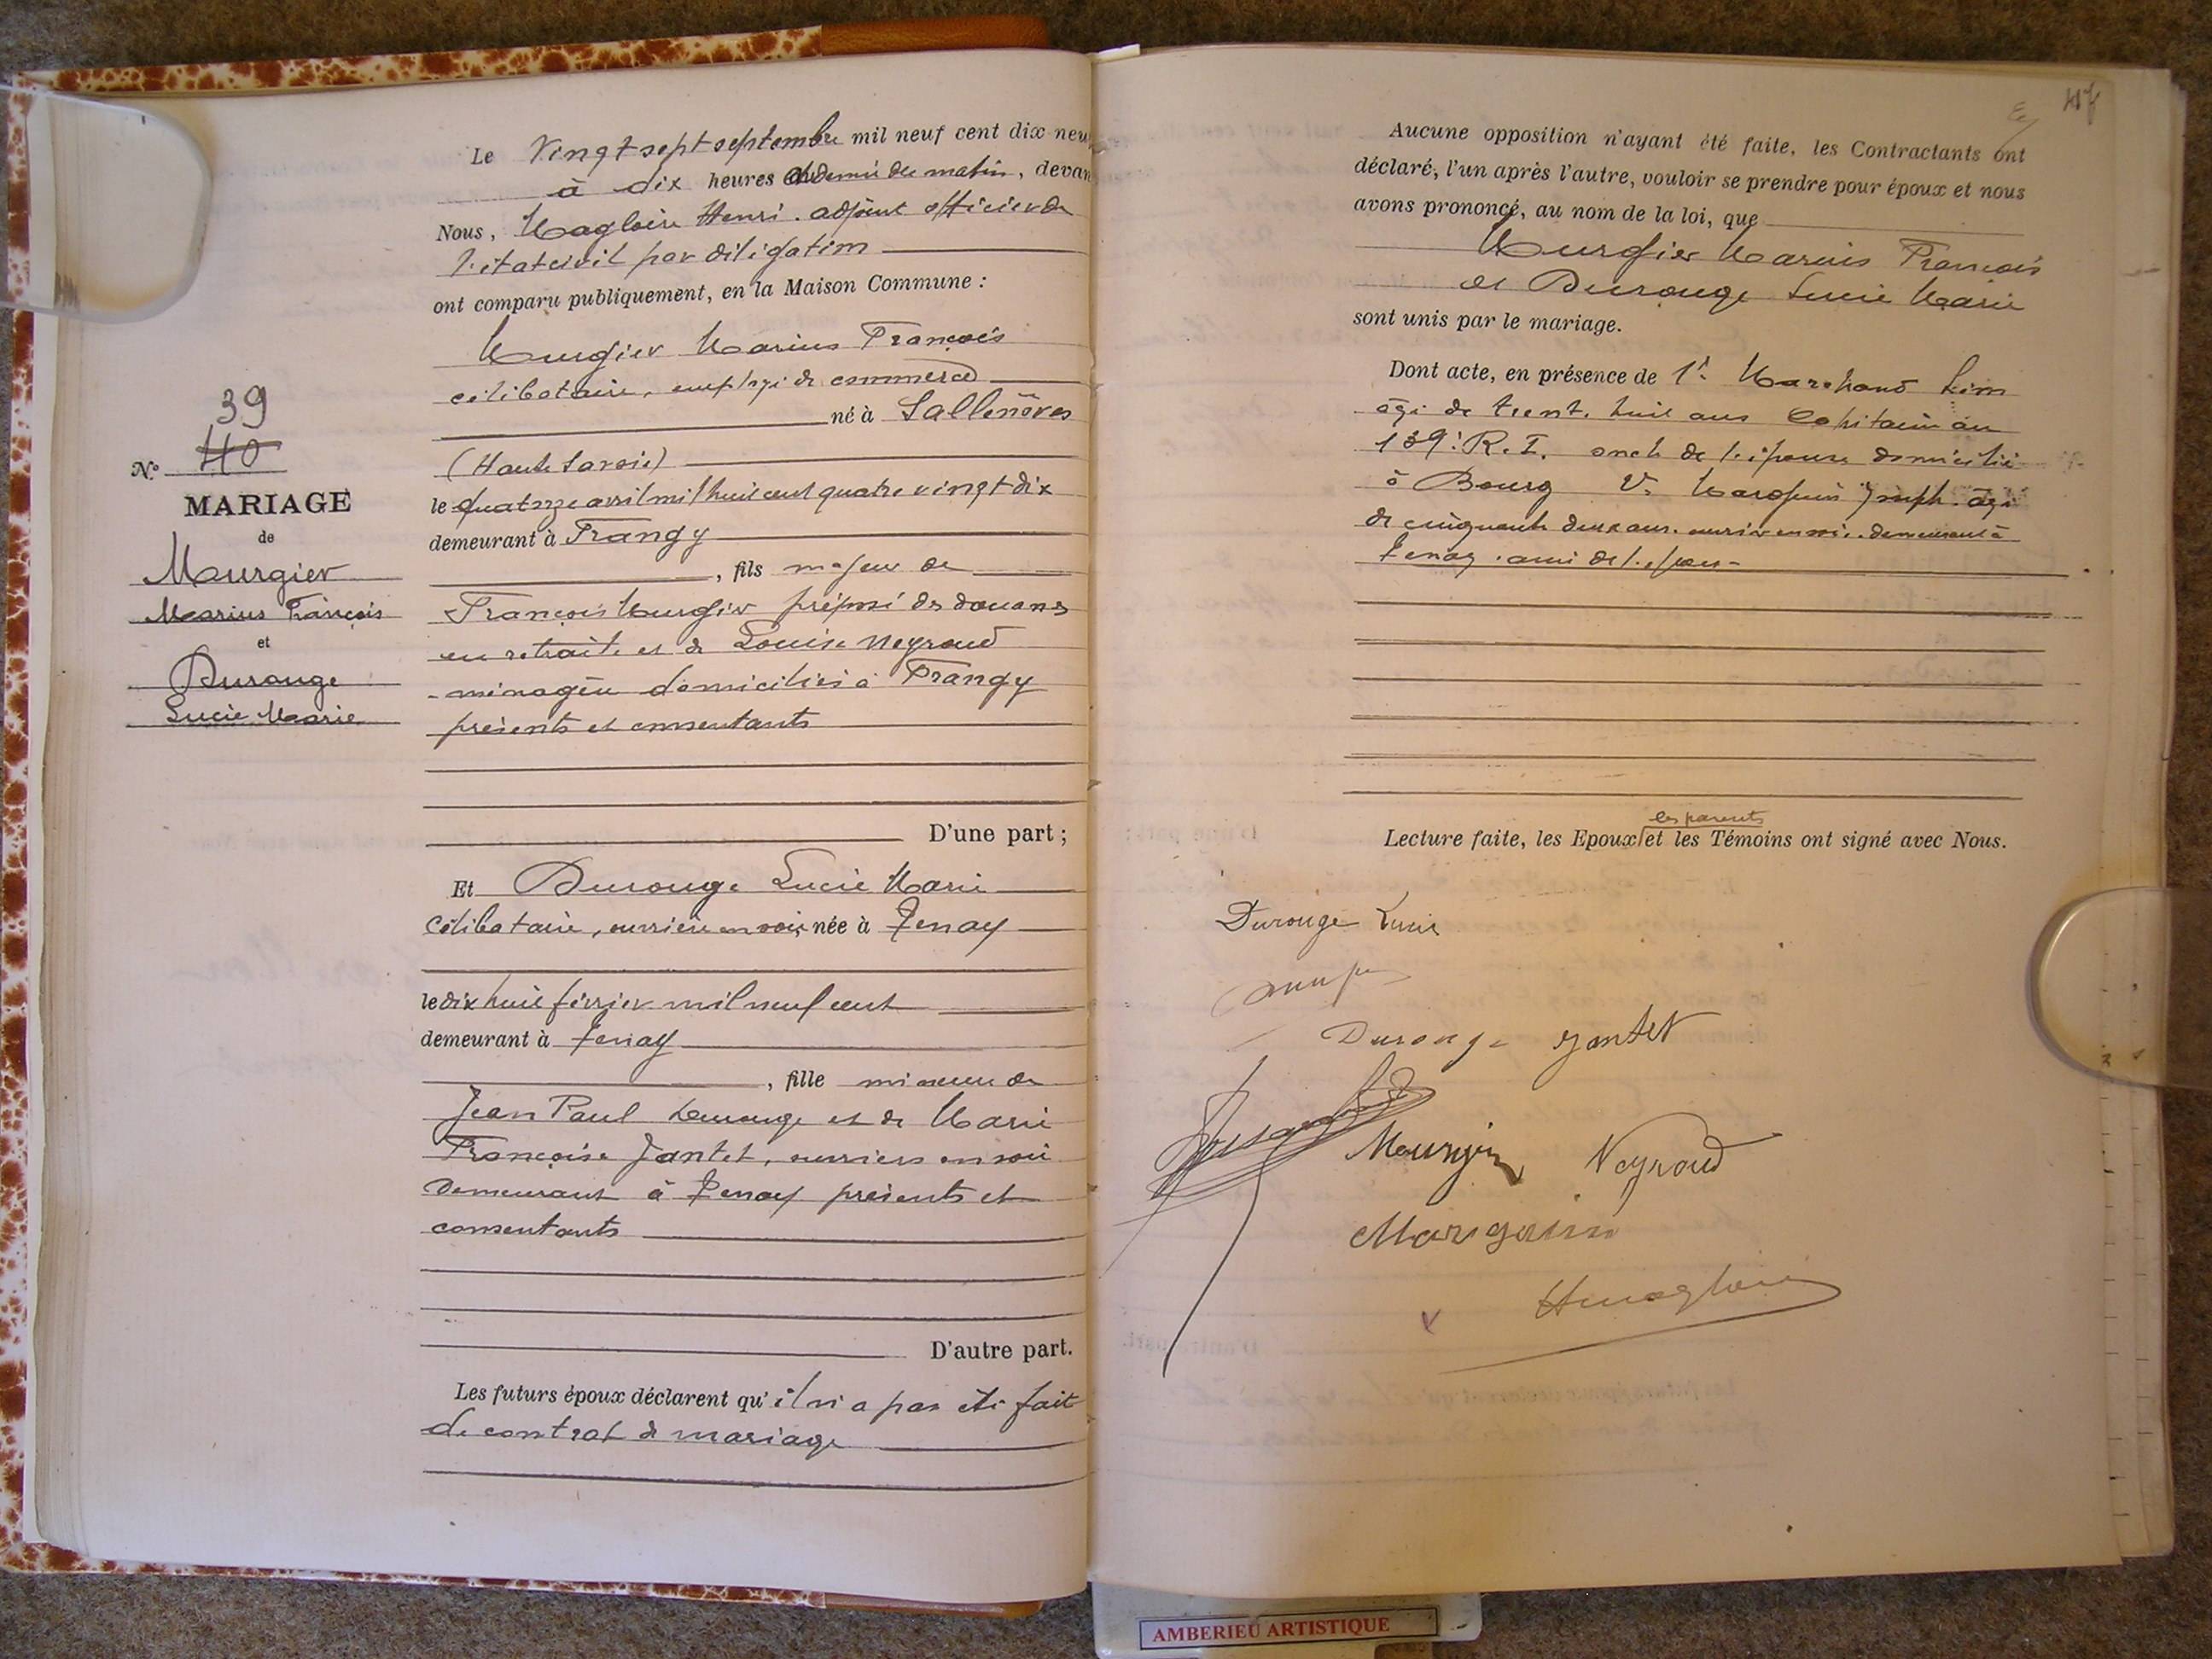 39
40
N°
MARIAGE
de
Mourgier
Marius François
et
Durouge
Lucie Marie
Le Vingt sept septembre mil neuf cent dix-neu
à dix heures et demie du matin, devan
Nous, Magloire Henri. adjoint officier de
l'état civil par délégation
ont comparu publiquement, en la Maison Commune :
Mourgier Marius François
célibataire, employé de commerce
né à Sallenôves
(Haute Savoie)
le quatorze avril mil huit cent quatre vingt dix
demeurant à Frangy
, fils majeur de
François Mourgier préposé des douanes
en retraite et de Louise Neyroud
ménagère domiciliés à Frangy
présents et consentants
D'une part ;
Et Durouge Lucie Marie
célibataire, ouvrière en soie, née à Tenay
le dix huit février mil neuf cent
demeurant à Tenay
, fille mineure de
Jean Paul Durouge et de Marie
Françoise Jantet, ouvriers en soie
demeurant à Tenay présents et
consentants
D'autre part.
Les futurs époux déclarent qu'il n'a pas été fait
de contrat de mariage
47
Aucune opposition n'ayant été faite, les Contractants ont
déclaré, l'un après l'autre, vouloir se prendre pour époux et nous
avons prononcé, au nom de la loi, que
Mourgier Marius François
et Durouge Lucie Marie
sont unis par le mariage.
Dont acte, en présence de 1° Marchand
âgé de trente huit ans Capitaine au
139e R.I. oncle de l'épouse domicilié
à Bourg 2° Marguin Joseph âgé
de cinquante deux ans. ouvrier en soie. demeurant à
Tenay. ami de l'époux
les parents
Lecture faite, les Epoux et les Témoins ont signé avec Nous.
Durouge Lucie
Durouge Jantet
Mourgier Neyroud
Marguin
HMagloire
AMBERIEU ARTISTIQUE